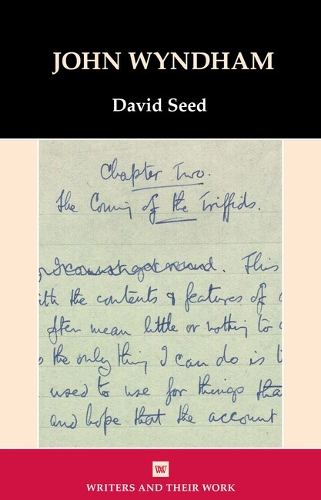 JOHN WYNDHAM
David Seed
Chapter Two.
The Coming of the Triffids.
This
ith the contents & features of
often mean little or nothing to
s the only thing I can do is
used to use for things tha
and hope that the account
W
WRITERS AND THEIR WORK